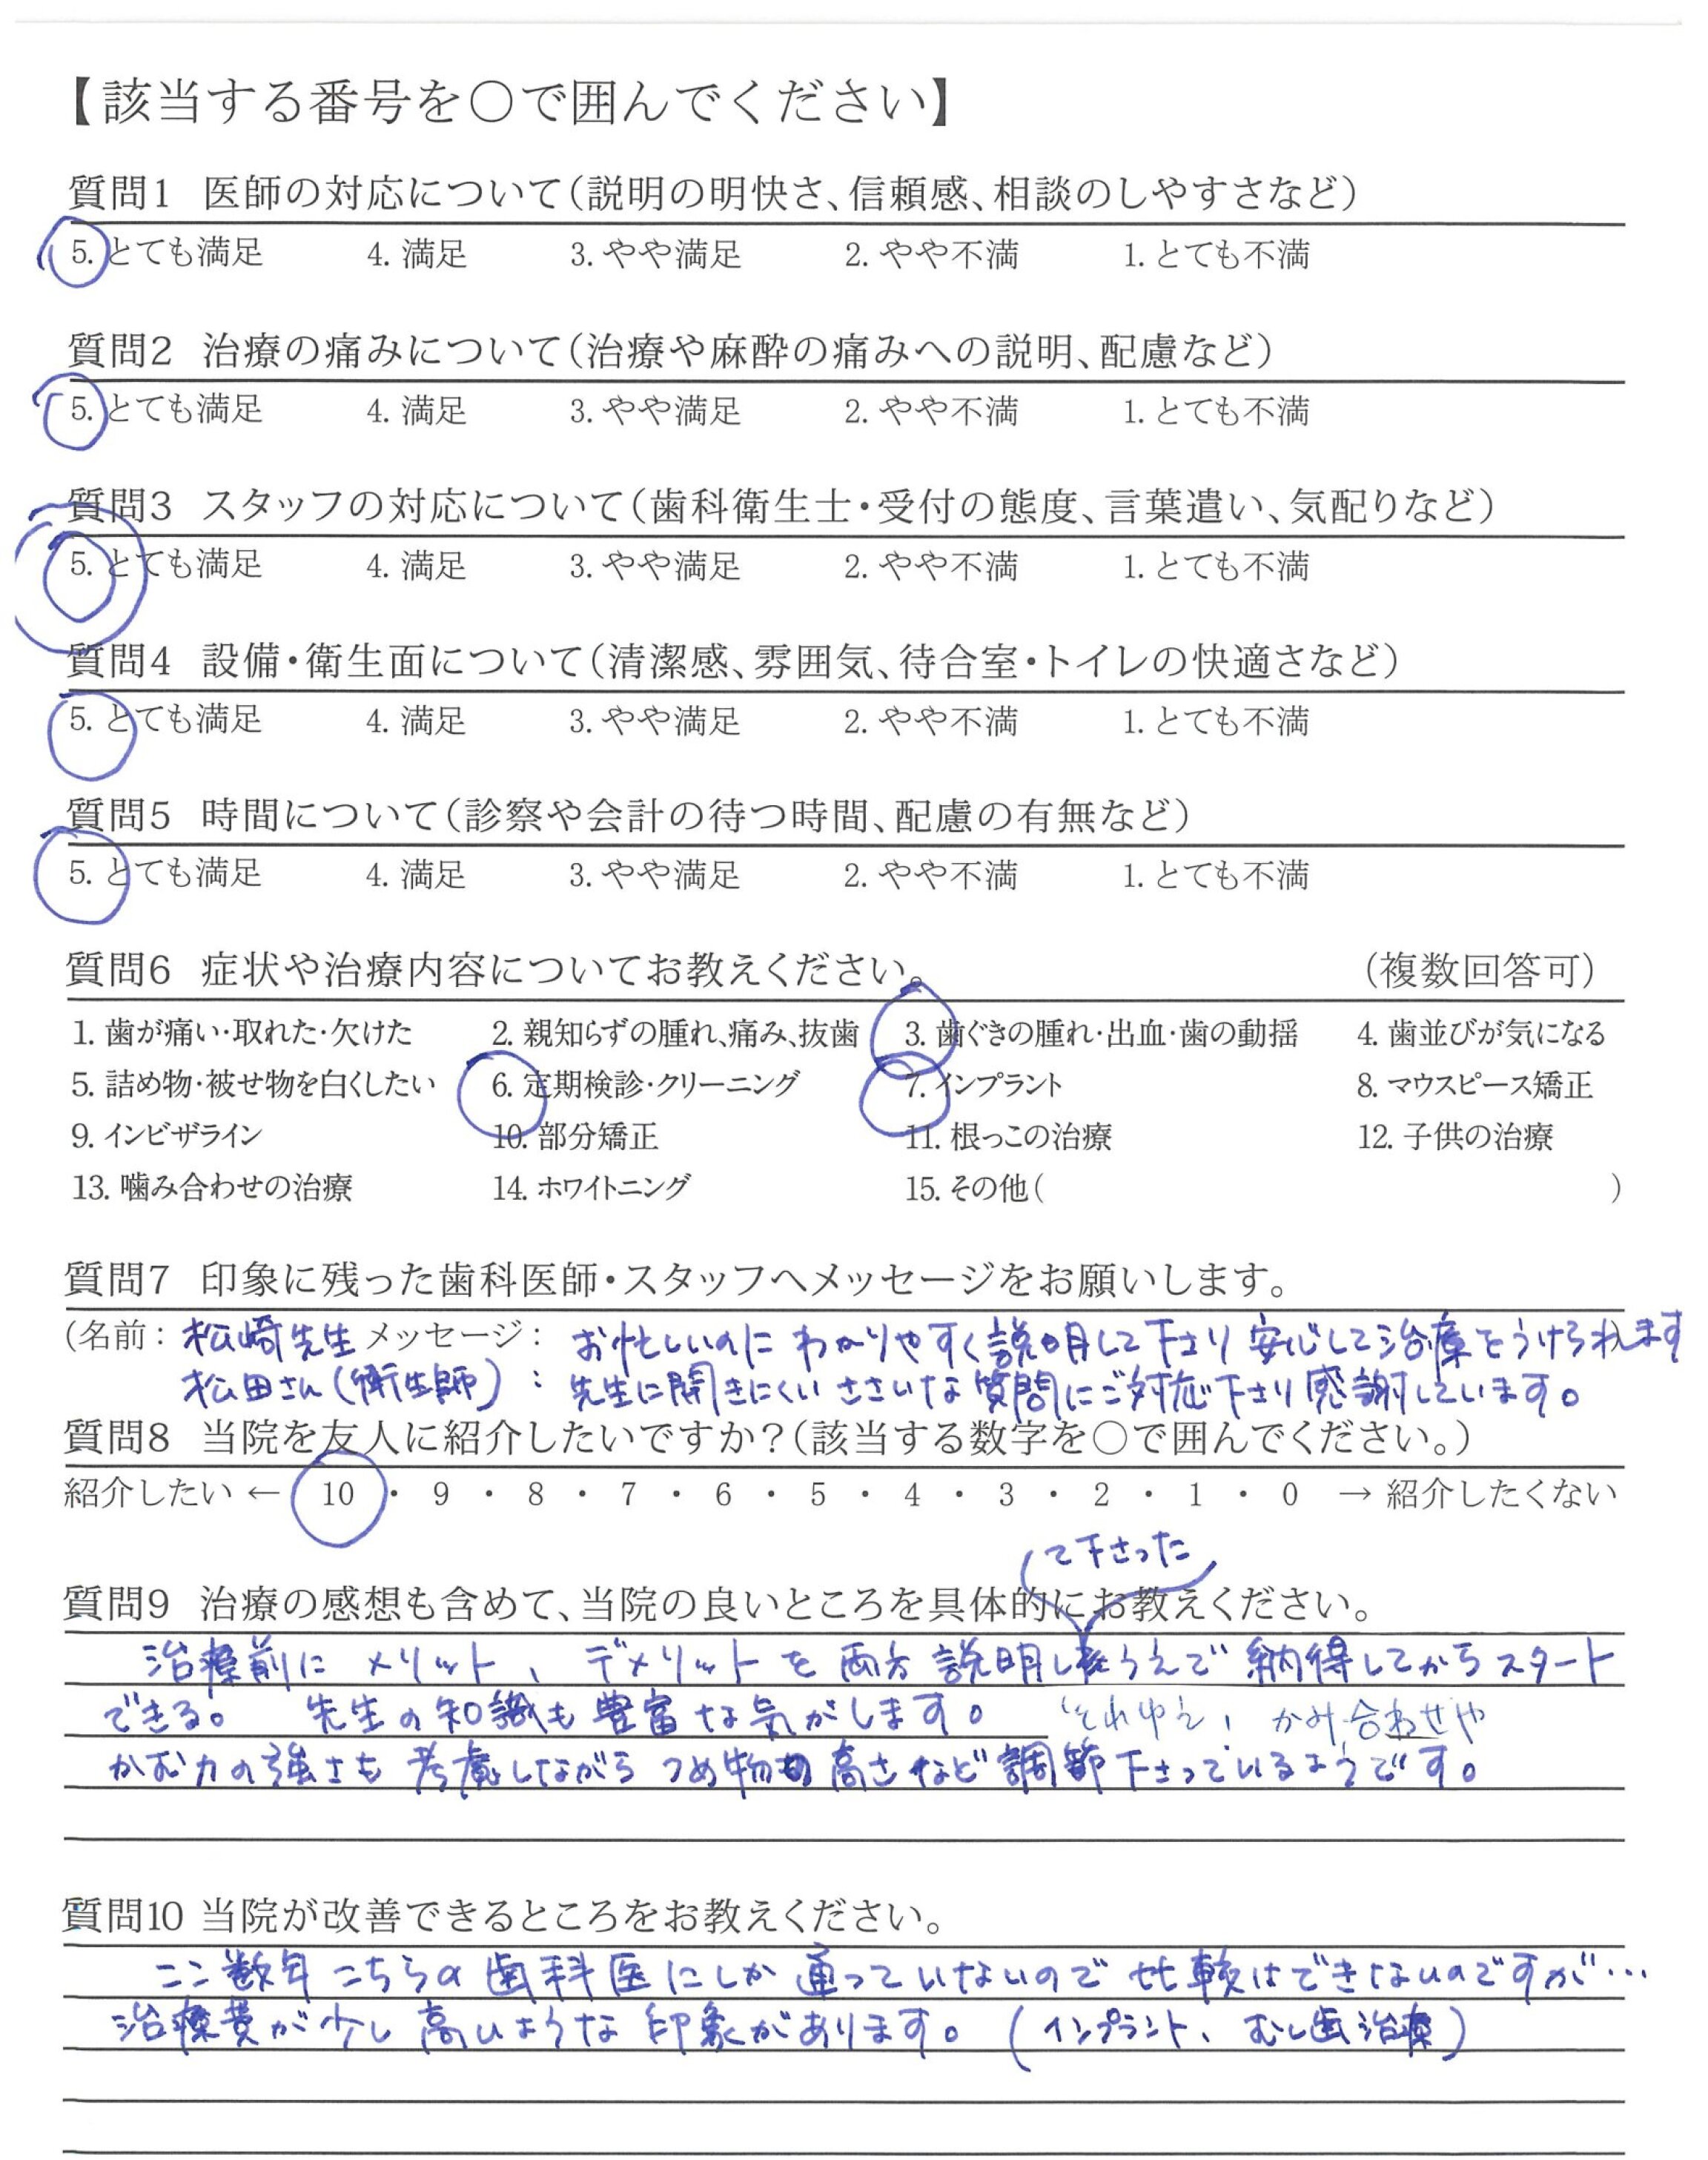 【該当する番号を○で囲んでください】
質問1 医師の対応について(説明の明快さ、信頼感、相談のしやすさなど)
5. とても満足 4. 満足 3. やや満足 2. やや不満 1. とても不満
質問2 治療の痛みについて(治療や麻酔の痛みへの説明、配慮など)
5. とても満足 4. 満足 3. やや満足 2. やや不満 1. とても不満
質問3 スタッフの対応について(歯科衛生士・受付の態度、言葉遣い、気配りなど)
5. とても満足 4. 満足 3. やや満足 2. やや不満 1. とても不満
質問4 設備・衛生面について(清潔感、雰囲気、待合室・トイレの快適さなど)
5. とても満足 4. 満足 3. やや満足 2. やや不満 1. とても不満
質問5 時間について(診察や会計の待つ時間、配慮の有無など)
5. とても満足 4. 満足 3. やや満足 2. やや不満 1. とても不満
質問6 症状や治療内容についてお教えください。 (複数回答可)
1. 歯が痛い・取れた・欠けた 2. 親知らずの腫れ、痛み、抜歯 3. 歯ぐきの腫れ・出血・歯の動揺 4. 歯並びが気になる
5. 詰め物・被せ物を白くしたい 6. 定期検診・クリーニング 7. インプラント 8. マウスピース矯正
9. インビザライン 10. 部分矯正 11. 根っこの治療 12. 子供の治療
13. 噛み合わせの治療 14. ホワイトニング 15. その他( )
質問7 印象に残った歯科医師・スタッフへメッセージをお願いします。
(名前: 松崎先生 メッセージ: お忙しいのに わかりやすく説明して下さり 安心して治療をうけられます
松田さん(衛生師): 先生に聞きにくい ささいな質問にご対応下さり感謝しています。
質問8 当院を友人に紹介したいですか?(該当する数字を○で囲んでください。)
紹介したい ← 10 ・ 9 ・ 8 ・ 7 ・ 6 ・ 5 ・ 4 ・ 3 ・ 2 ・ 1 ・ 0 → 紹介したくない
て下さった
質問9 治療の感想も含めて、当院の良いところを具体的にお教えください。
治療前に メリット、デメリットを 両方 説明し うえで 納得してからスタート
できる。 先生の知識も豊富な気がします。 それゆえ、かみ合わせや
かむ力の強さも 考慮しながら つめ物の高さなど調節下さっているようです。
質問10 当院が改善できるところをお教えください。
ここ数年こちらの歯科医にしか通っていないので比較はできないのですが…
治療費が少し高いような印象があります。(インプラント、むし歯治療)